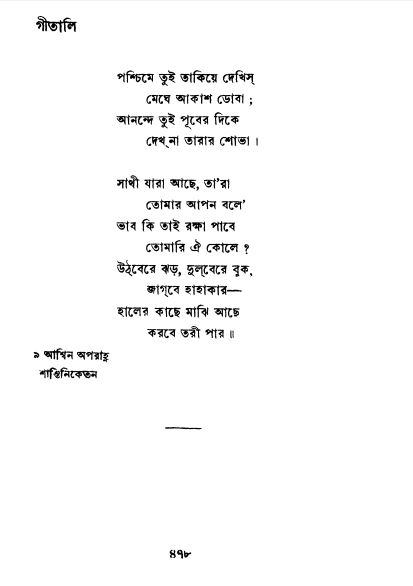 গীতালি
পশ্চিমে তুই তাকিয়ে দেখিস্
মেঘে আকাশ ডোবা ;
আনন্দে তুই পূবের দিকে
দেখ্‌না তারার শোভা ।
সাথী যারা আছে, তা'রা
তোমার আপন বলে'
ভাব কি তাই রক্ষা পাবে
তোমারি ঐ কোলে ?
উঠ্‌বেরে ঝড়, দুল্‌বেরে বুক,
জাগ্‌বে হাহাকার—
হালের কাছে মাঝি আছে
করবে তরী পার ॥
৯ আশ্বিন অপরাহ্ণ
শান্তিনিকেতন
৪৭৮